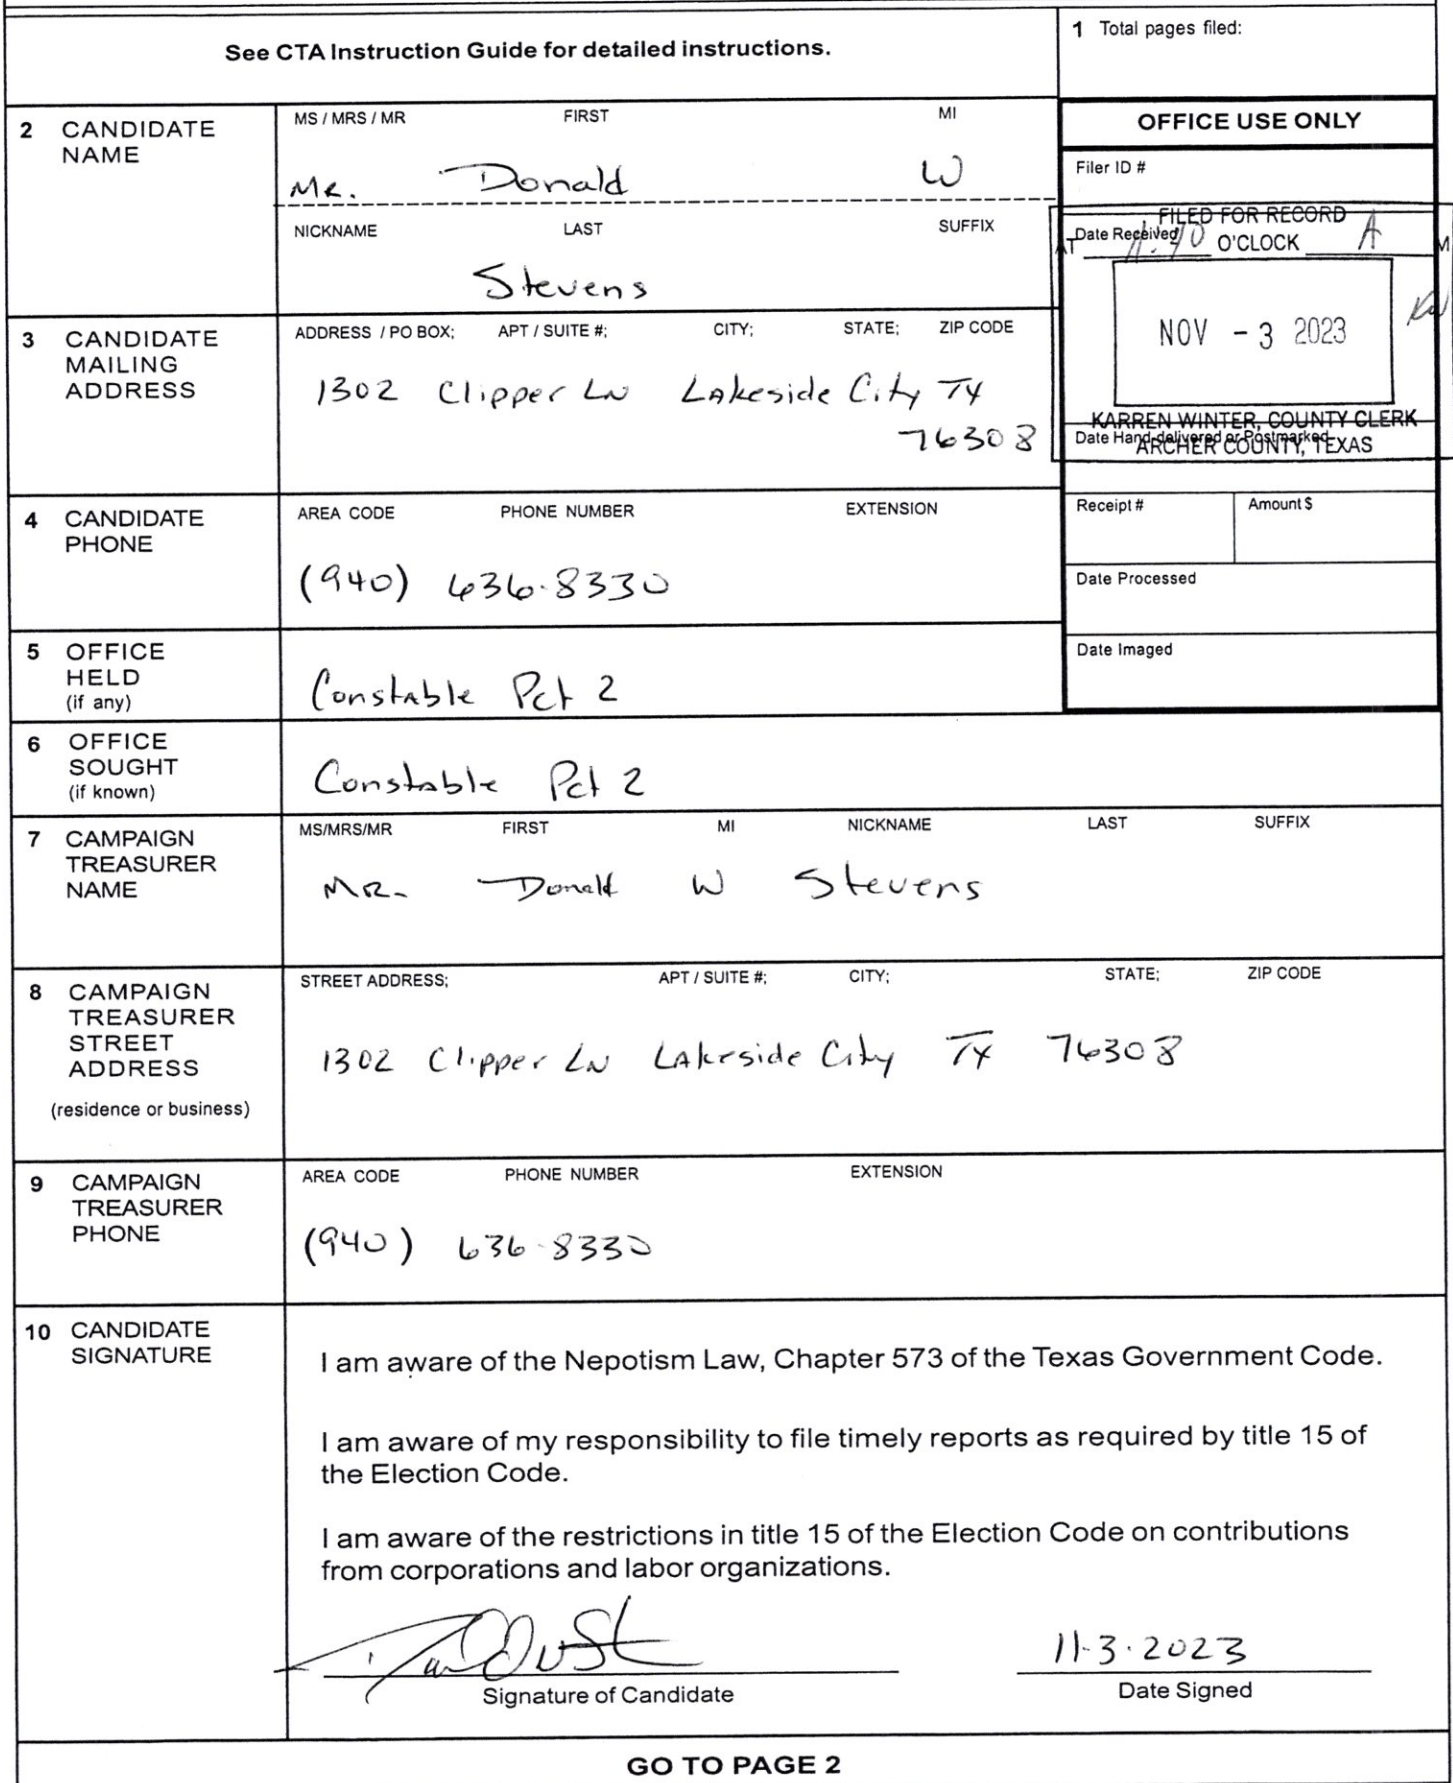 See CTA Instruction Guide for detailed instructions.
1 Total pages filed:
2 CANDIDATE NAME
MS / MRS / MR FIRST MI
Mr. Donald W
NICKNAME LAST SUFFIX
Stevens
OFFICE USE ONLY
Filer ID #
FILED FOR RECORD
Date Received
AT O'CLOCK A M
NOV - 3 2023
KARREN WINTER, COUNTY CLERK
Date Hand-delivered or Postmarked
ARCHER COUNTY, TEXAS
Receipt # Amount $
Date Processed
Date Imaged
3 CANDIDATE MAILING ADDRESS
ADDRESS / PO BOX; APT / SUITE #; CITY; STATE; ZIP CODE
1302 Clipper LN Lakeside City TX
76308
4 CANDIDATE PHONE
AREA CODE PHONE NUMBER EXTENSION
(940) 636-8330
5 OFFICE HELD (if any)
Constable Pct 2
6 OFFICE SOUGHT (if known)
Constable Pct 2
7 CAMPAIGN TREASURER NAME
MS/MRS/MR FIRST MI NICKNAME LAST SUFFIX
MR. Donald W Stevens
8 CAMPAIGN TREASURER STREET ADDRESS
(residence or business)
STREET ADDRESS; APT / SUITE #; CITY; STATE; ZIP CODE
1302 Clipper LN Lakeside City TX 76308
9 CAMPAIGN TREASURER PHONE
AREA CODE PHONE NUMBER EXTENSION
(940) 636-8330
10 CANDIDATE SIGNATURE
I am aware of the Nepotism Law, Chapter 573 of the Texas Government Code.
I am aware of my responsibility to file timely reports as required by title 15 of
the Election Code.
I am aware of the restrictions in title 15 of the Election Code on contributions
from corporations and labor organizations.
11-3-2023
Signature of Candidate Date Signed
GO TO PAGE 2